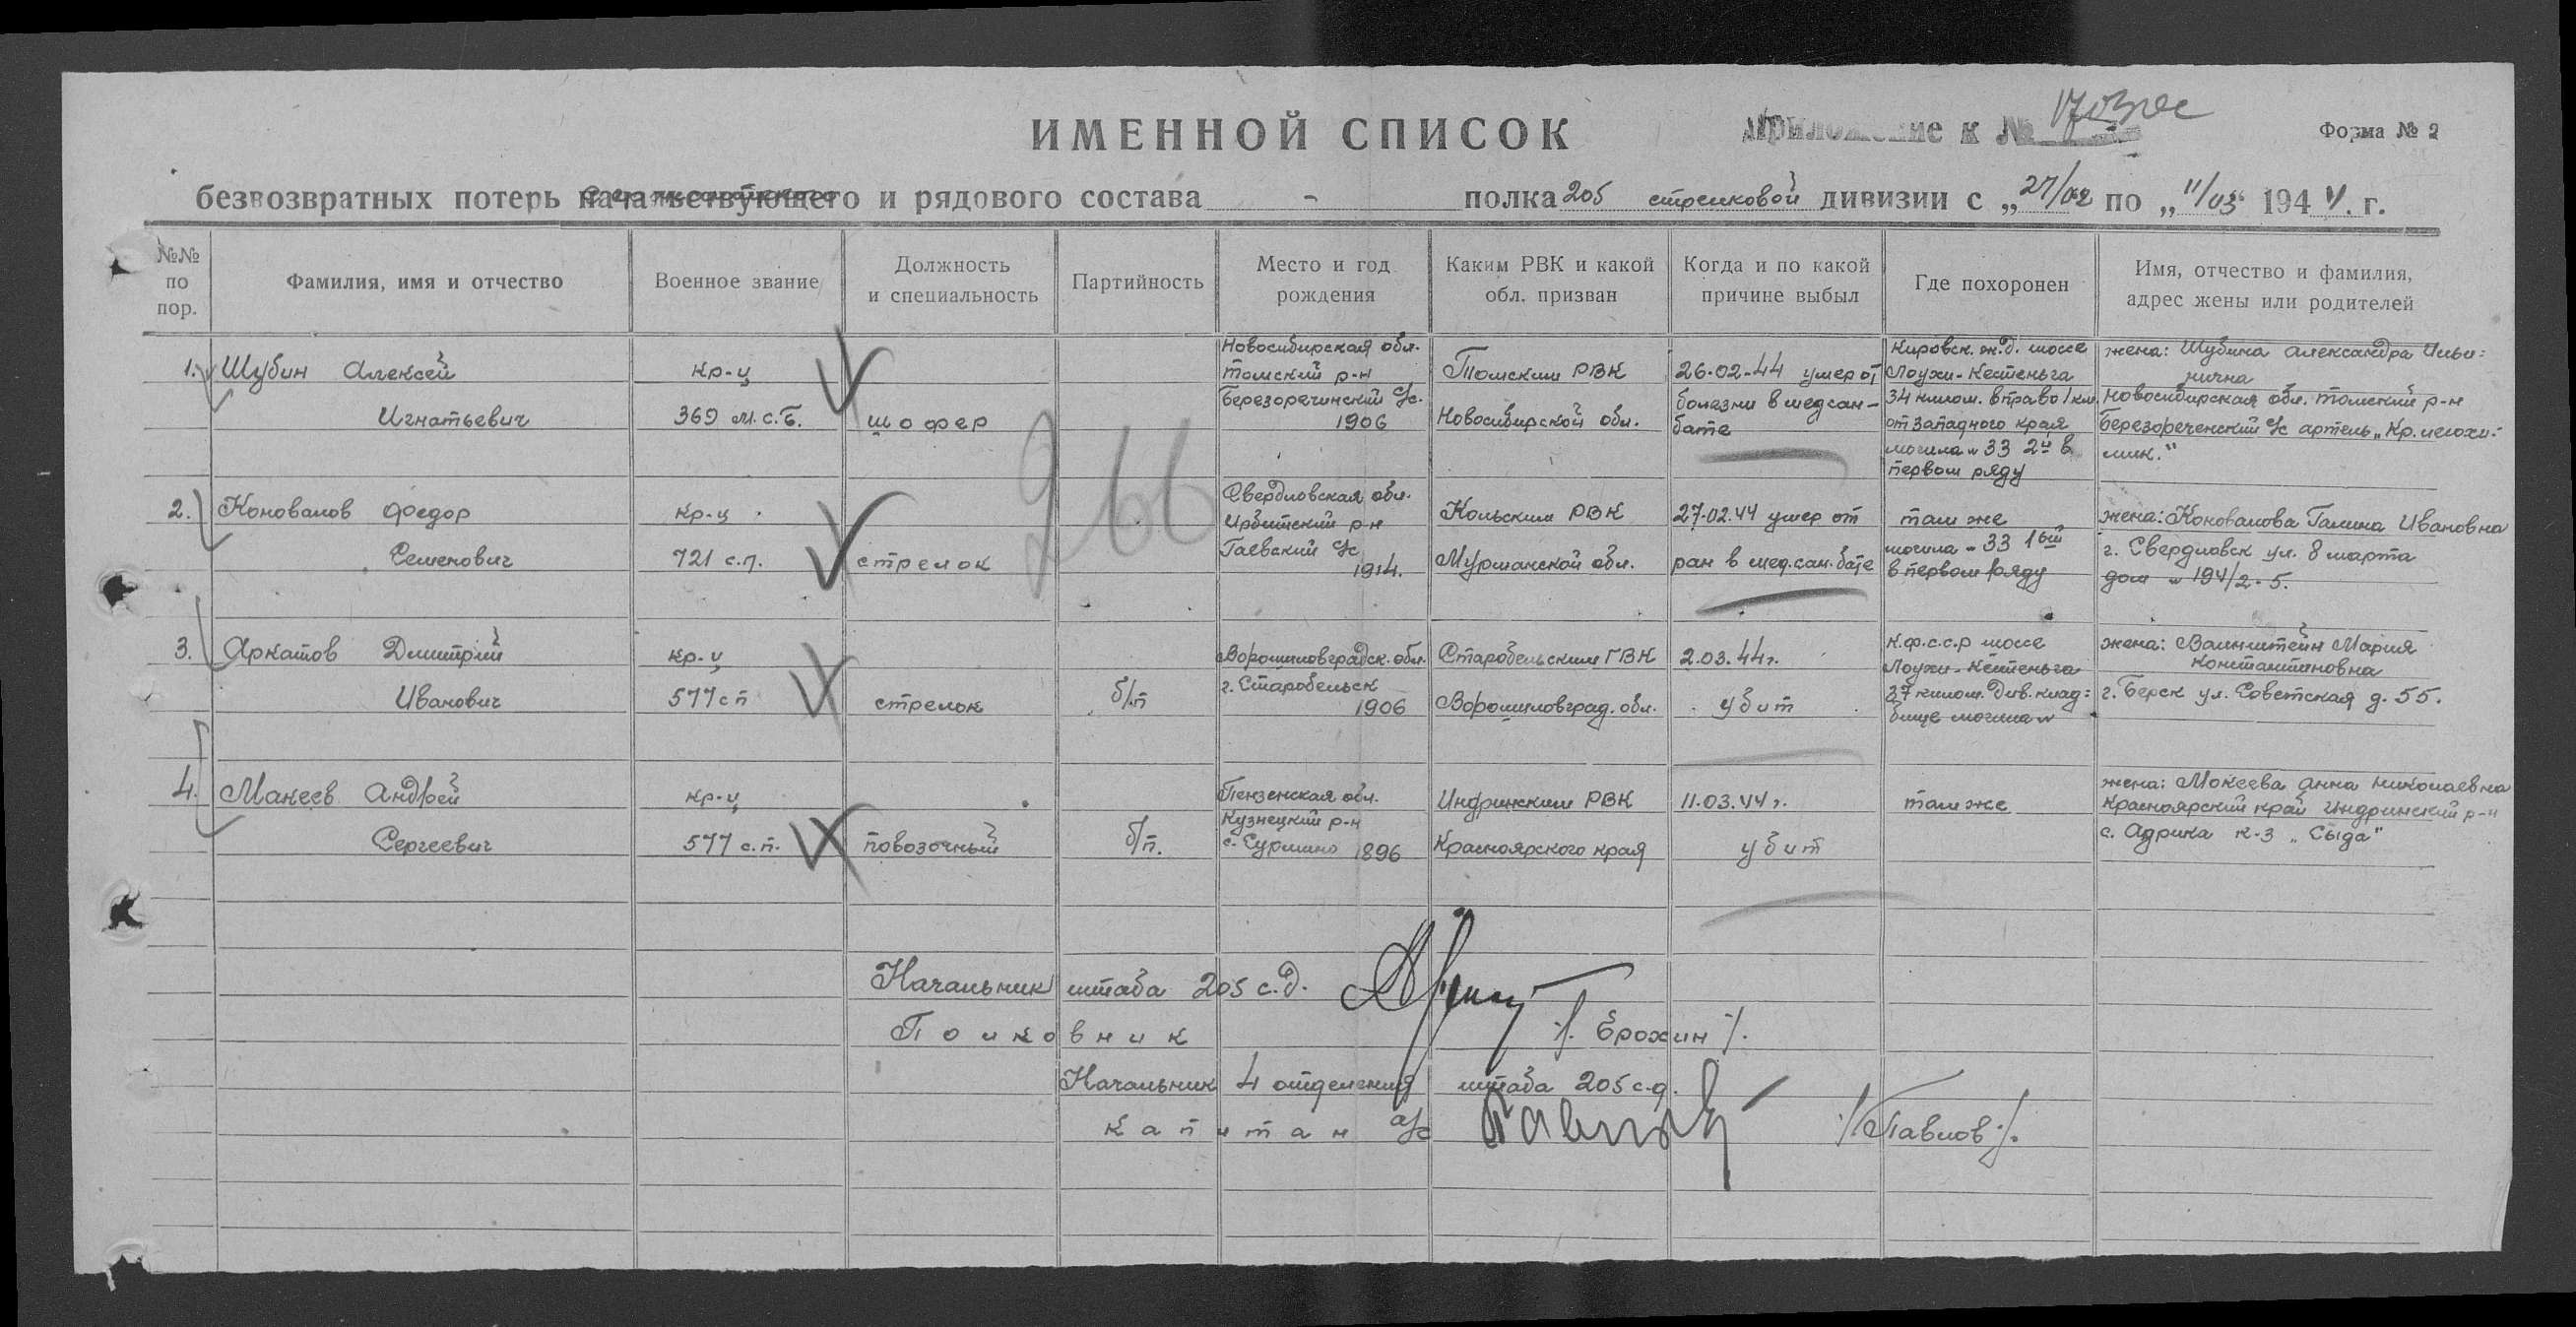 ИМЕННОЙ СПИСОК
Приложение к № 1703пес
Форма № 2
безвозвратных потерь начальствующего и рядового состава - полка 205 стрелковой дивизии с „27/02 по „11/03" 1944 г.
№№ по пор.
Фамилия, имя и отчество
Военное звание
Должность и специальность
Партийность
Место и год рождения
Каким РВК и какой обл. призван
Когда и по какой причине выбыл
Где похоронен
Имя, отчество и фамилия, адрес жены или родителей
1. Шубин Алексей
Игнатьевич
кр-ц
369 м.с.б.
шофер
Новосибирская обл.
Томский р-н
Березоречинский с/с.
1906
Томским РВК
Новосибирской обл.
26.02-44 умер от
болезни в медсан-
бате
Кировск. ж.д. шоссе
Лоухи-Кестеньга
34 килом. вправо 1 км.
от западного края
могила № 33 2й в
первом ряду
жена: Шубина Александра Ильи=
нична
Новосибирская обл. Томский р-н
Березореченский с/с артель „Кр. лесохи-
мик."
2. Коновалов Федор
Семенович
кр-ц
721 с.п.
стрелок
266
Свердловская обл.
Ирбитский р-н
Гаевский с/с
1914.
Кольским РВК
Мурманской обл.
27.02.44 умер от
ран в мед.сан.бате
там же
могила - 33 1ый
в первом ряду
жена: Коновалова Галина Ивановна
г. Свердловск ул. 8 марта
дом № 194/2-5.
3. Аркатов Дмитрий
Иванович
кр-ц
577 сп
стрелок
б/п
Ворошиловградск. обл.
г. Старобельск
1906
Старобельским ГВК
Ворошиловград. обл.
2.03.44г.
убит
к.ф.с.с.р шоссе
Лоухи-Кестеньга
37 килом. Див. клад=
бище могила №
жена: Ваинштейн Мария
Константиновна
г. Берск ул. Советская д. 55.
4. Макеев Андрей
Сергеевич
кр-ц
577 с.п.
повозочный
б/п.
Пензенская обл.
Кузнецкий р-н
с. Сурмино 1896
Индринским РВК
Красноярского края
11.03.44 г.
убит
там же
жена: Мокеева Анна Николаевна
Красноярский край Индринский р-н
с. Адрика к-з „Сыда"
Начальник штаба 205 с.д.
Полковник /. Ерохин /.
Начальник 4 отделения штаба 205 с.д.
капитан а/с Павлов /Павлов/.